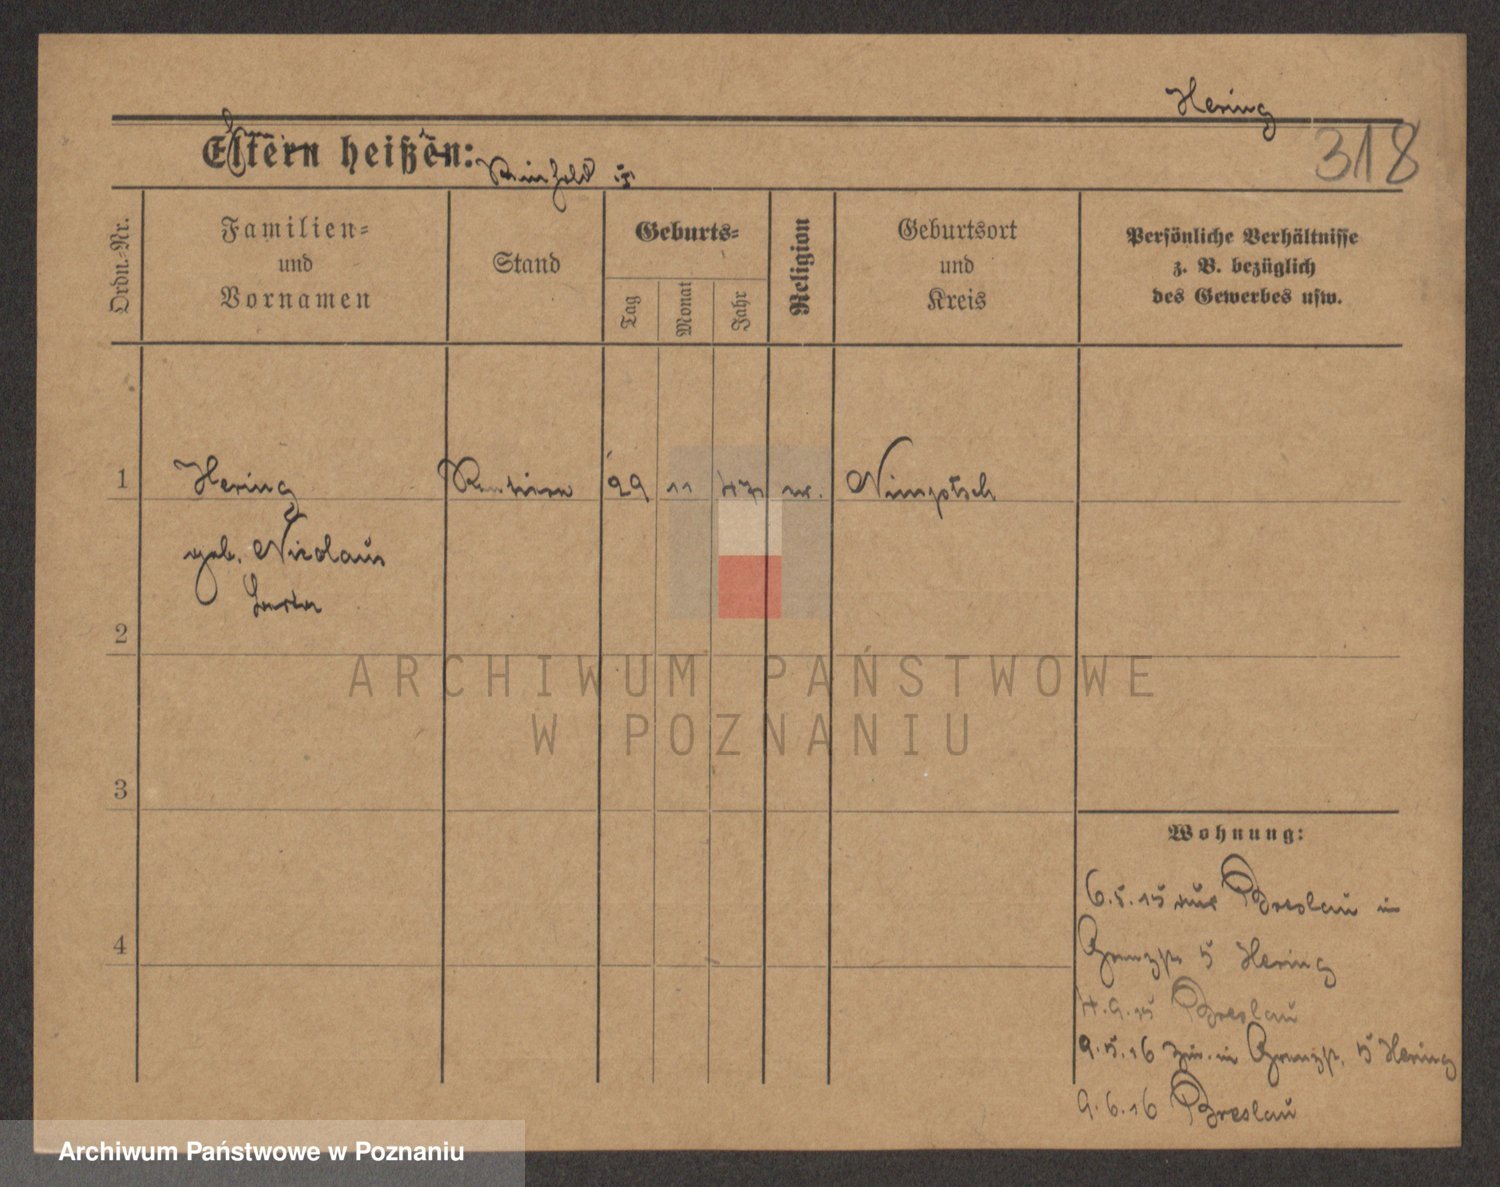 Hering
318
Eltern heißen:
Ordn.-Nr.
Familien-
und
Vornamen
Stand
Geburts-
Tag
Monat
Jahr
Religion
Geburtsort
und
Kreis
Persönliche Verhältnisse
z. B. bezüglich
des Gewerbes usw.
1 Hering 29 11 47 Nimptsch
geb. Nicolaus
2
ARCHIWUM PAŃSTWOWE
W POZNANIU
3
Wohnung:
6.5.15 aus Breslau in
5 Hering
4
4.9.15 Breslau
9.5.16 in 5 Hering
9.6.16 Breslau
Archiwum Państwowe w Poznaniu